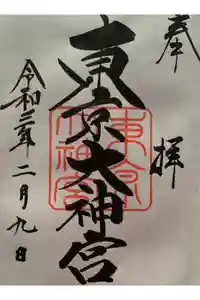 奉拝
東京大神宮
東京大神宮
令和三年二月九日